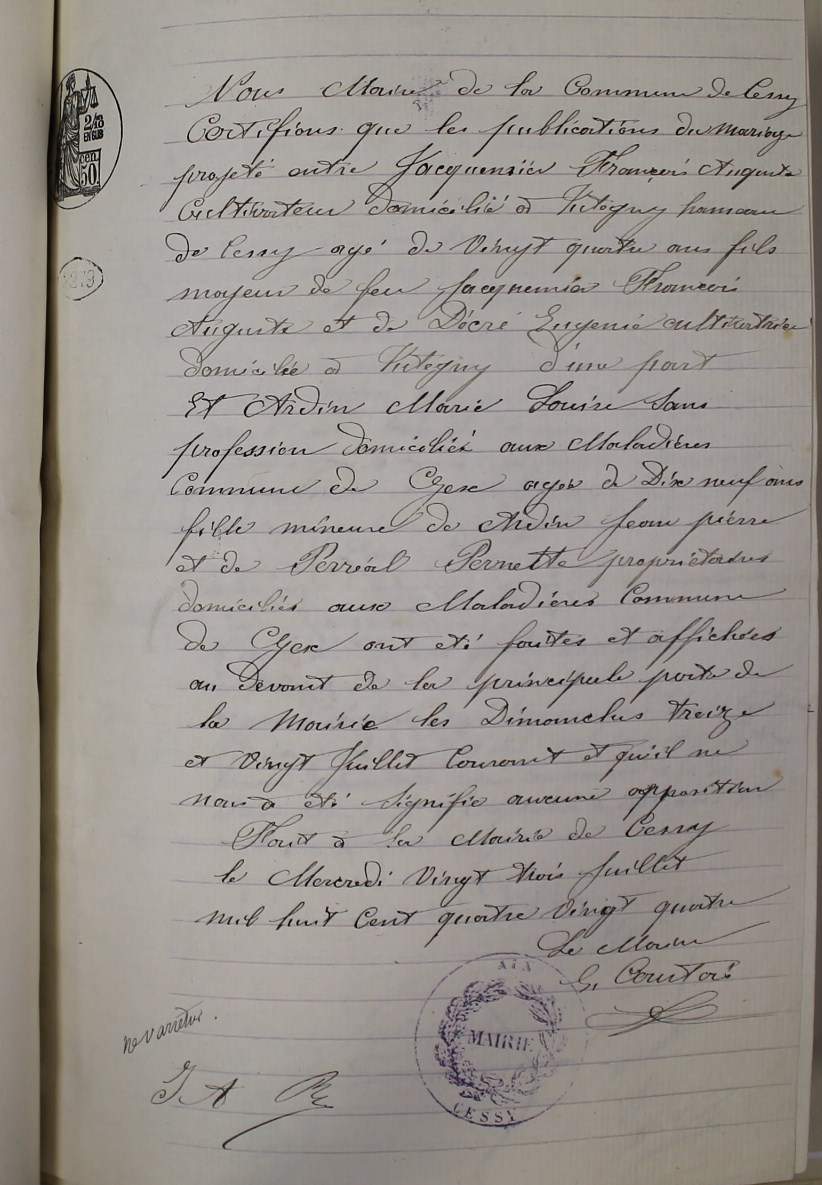 2/13
EN SUS
50
Nous Maire de la Commune de Cessy
Certifions que les publications du mariage
projeté entre Jacquemier François Auguste
Cultivateur domicilié à Vitegny hameau
de Cessy agé de Vingt quatre ans fils
mayeur de feu Jacquemier François
Auguste et de Décré Eugenie cultivatrice
domicilié à Vitegny d'une part
Et Ardin Marie Louise Sans
profession domiciliée aux Maladières
Commune de Gex agée de Dix neuf ans
fille mineure de Ardin Jean pierre
et de Perréal Pernette propriétaires
domiciliés aux Maladières Commune
de Gex ont été faites et affichées
au Devant de la principale porte de
la Mairie les Dimanches treize
et Vingt Juillet Courant et qu'il ne
nous a été signifié aucune opposition
Fait à la Mairie de Cessy
le Mercredi Vingt trois Juillet
mil huit Cent quatre Vingt quatre
Le Maire
AIN
MAIRIE
CESSY
ne varietur.
J A